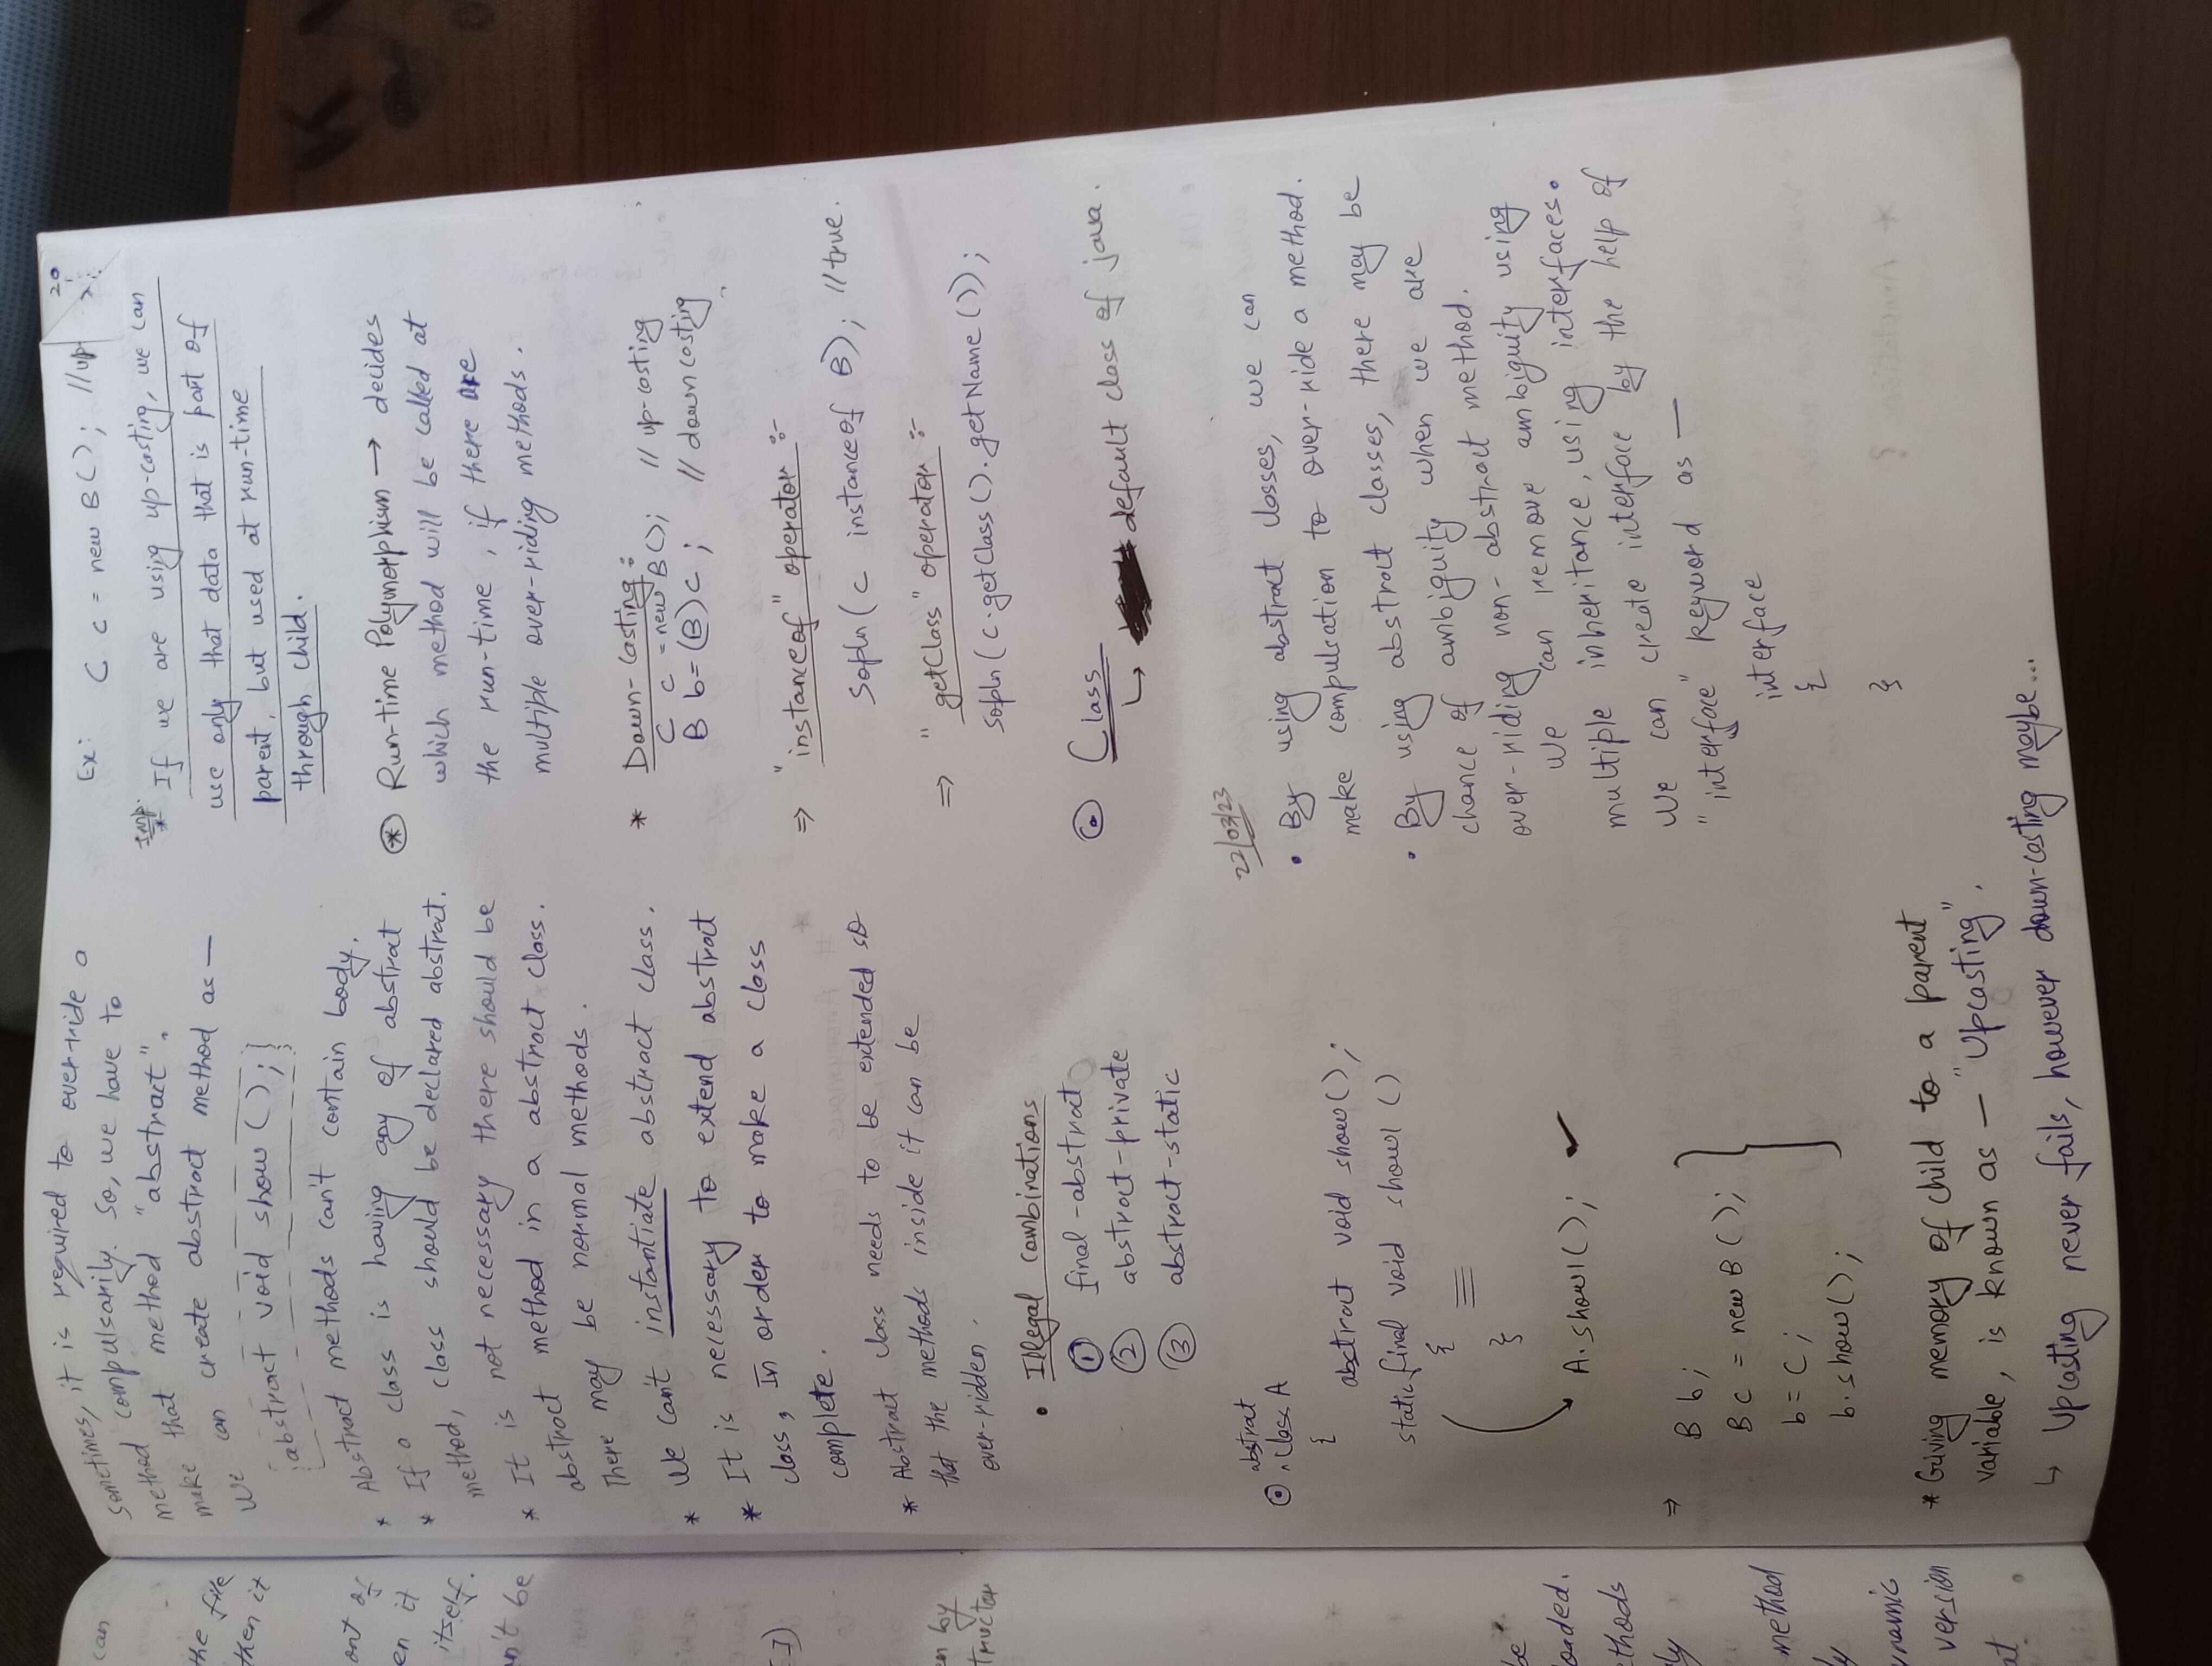 can
the file
then it
ont of
en it
itself.
an't be
I)
en by
tructor
be
oaded.
ethods
ly
method
ly
ynamic
version
at
Sometimes, it is required to over-ride a
method compulsarily. So, we have to
make that method "abstract".
We can create abstract method as —
abstract void show ( );
* Abstract methods can't contain body.
* If a class is having any of abstrat
method, class should be declared abstrat.
* It is not necessary there should be
abstract method in a abstract class.
There may be normal methods.
* We can't instantiate abstract class.
* It is necessary to extend abstract
class, In order to make a class
complete.
* Abstract class needs to be extended so
that the methods inside it can be
over-ridden.
• Illegal combinations
① final-abstrat
② abstract-private
③ abstract-static
abstrat
⊙ ^class A
{
abstract void show( );
static final void show1 ( )
{
}
A.show1( ); ✓
⇒
B b;
B c = new B ( );
b = c;
b.show( );
* Giving memory of child to a parent
variable, is known as — "Upcasting".
↳ Upcasting never fails, however down-casting maybe...
20
Ex: C c = new B ( ); //up
Imp.
* If we are using up-casting, we can
use only that data that is part of
parent, but used at run-time
through child.
⊛ Run-time Polymorphism → decides
which method will be called at
the run-time, if there are
multiple over-riding methods.
* Down-casting :
C c = new B( ); // up-casting
B b = (B) c ; // down casting
⇒ "instanceof" operator :-
Sopln ( c instanceof B); //true.
⇒ "getClass" operator :-
sopln ( c.getClass ( ). getName ( ) );
⊙ Class
↳ default class of java.
22/03/23
• By using abstract classes, we can
make compulsation to over-ride a method.
• By using abstract classes, there may be
chance of ambiguity when we are
over-riding non-abstract method.
We can remove ambiguity using
multiple inheritance, using interfaces.
We can create interface by the help of
"interface" keyword as —
interface
{
}